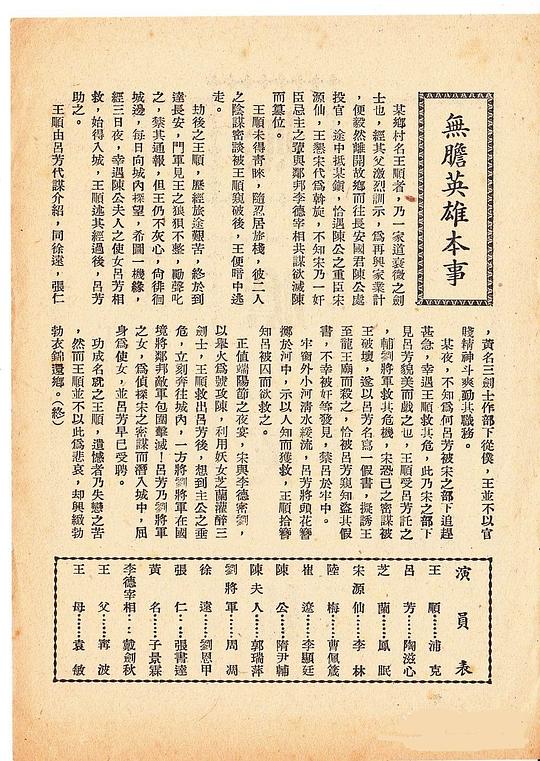 無膽英雄本事
某鄉村名王順者，乃一家道衰微之劍
士也，經其父激烈訓示，爲再興家業計
，便毅然離開故鄉而往長安國君陳公處
投官，途中抵某鎮，恰遇陳公之重臣宋
源仙，王懇宋代爲斡旋，不知宋乃一奸
臣忌主之賣與鄰邦李德宰相共謀欲滅陳
而篡位。
王順未得靑睞，隨忍居旅棧，彼二人
之陰謀密談被王順窺破後，王便暗中逃
走。
劫後之王順，歷經旅途艱苦，終於到
達長安，門軍見王之狼狽不整，勵聲叱
之，禁其通報，但王仍不灰心，倘徘徊
城邊，每日向城內探望，希圖一機緣，
經三日夜，幸遇陳公夫人之使女呂芳相
救，始得入城，王順述其經過後，呂芳
助之。
王順由呂芳代謀介紹，同徐遠，張仁
，黃名三劍士作部下從僕，王並不以官
賤精神斗爽勤其職務。
某夜，不知爲何呂芳被宋之部下追趕
甚急，幸遇王順救其危，此乃宋之部下
見呂芳貌美而戲之也，王順受呂芳託之
，輔劉將軍救其危機，宋恐己之密謀被
王破壞，遂以呂芳名爲一假書，擬誘王
至龍王廟而殺之，恰被呂芳窺知盜其假
書，不幸被奸等發見，禁呂於牢中。
牢窗外小河淸水緩流，呂芳將頭花簪
擲於河中，示以人知而獲救，王順拾簪
知呂被囚而欲救之。
正値端陽節之夜宴，宋與李德密劉，
以舉火爲號攻陳，利用妖女芝蘭灌醉三
劍士，王順救出呂芳後，想到主公之垂
危，立刻奔往城內，一方將劉將軍在國
境將鄰邦敵軍包圍擊滅！呂芳乃劉將軍
之女，爲偵探宋之密謀而潛入城中，屈
身爲使女，並呂芳早已受聘。
功成名就之王順，遺憾者乃失戀之苦
，然而王順並不以此爲悲哀，却興緻勃
勃衣錦還鄉。（終）
演員表
王順……浦克
呂芳……陶滋心
芝蘭……鳳眠
宋源仙…李林
陸梅……曹佩箴
崔遼……李顯廷
陳公……隋尹輔
陳夫人…郭瑞萍
劉將軍…周凋
徐遠……劉恩甲
張仁……張書達
黃名……子景霖
李德宰相…戴劍秋
王父……甯波
王母……袁敏